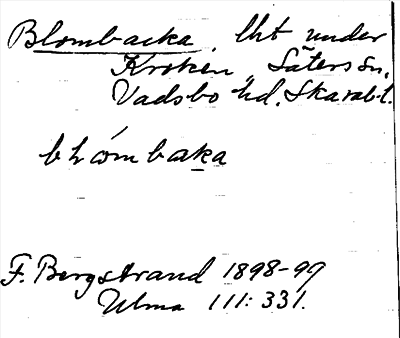 Blombacka, lht under
Kroken, Säters sn,
Vadsbo hd, Skarab.l.
bλómbaka
F. Bergstrand 1898-99
Ulma 111:331.